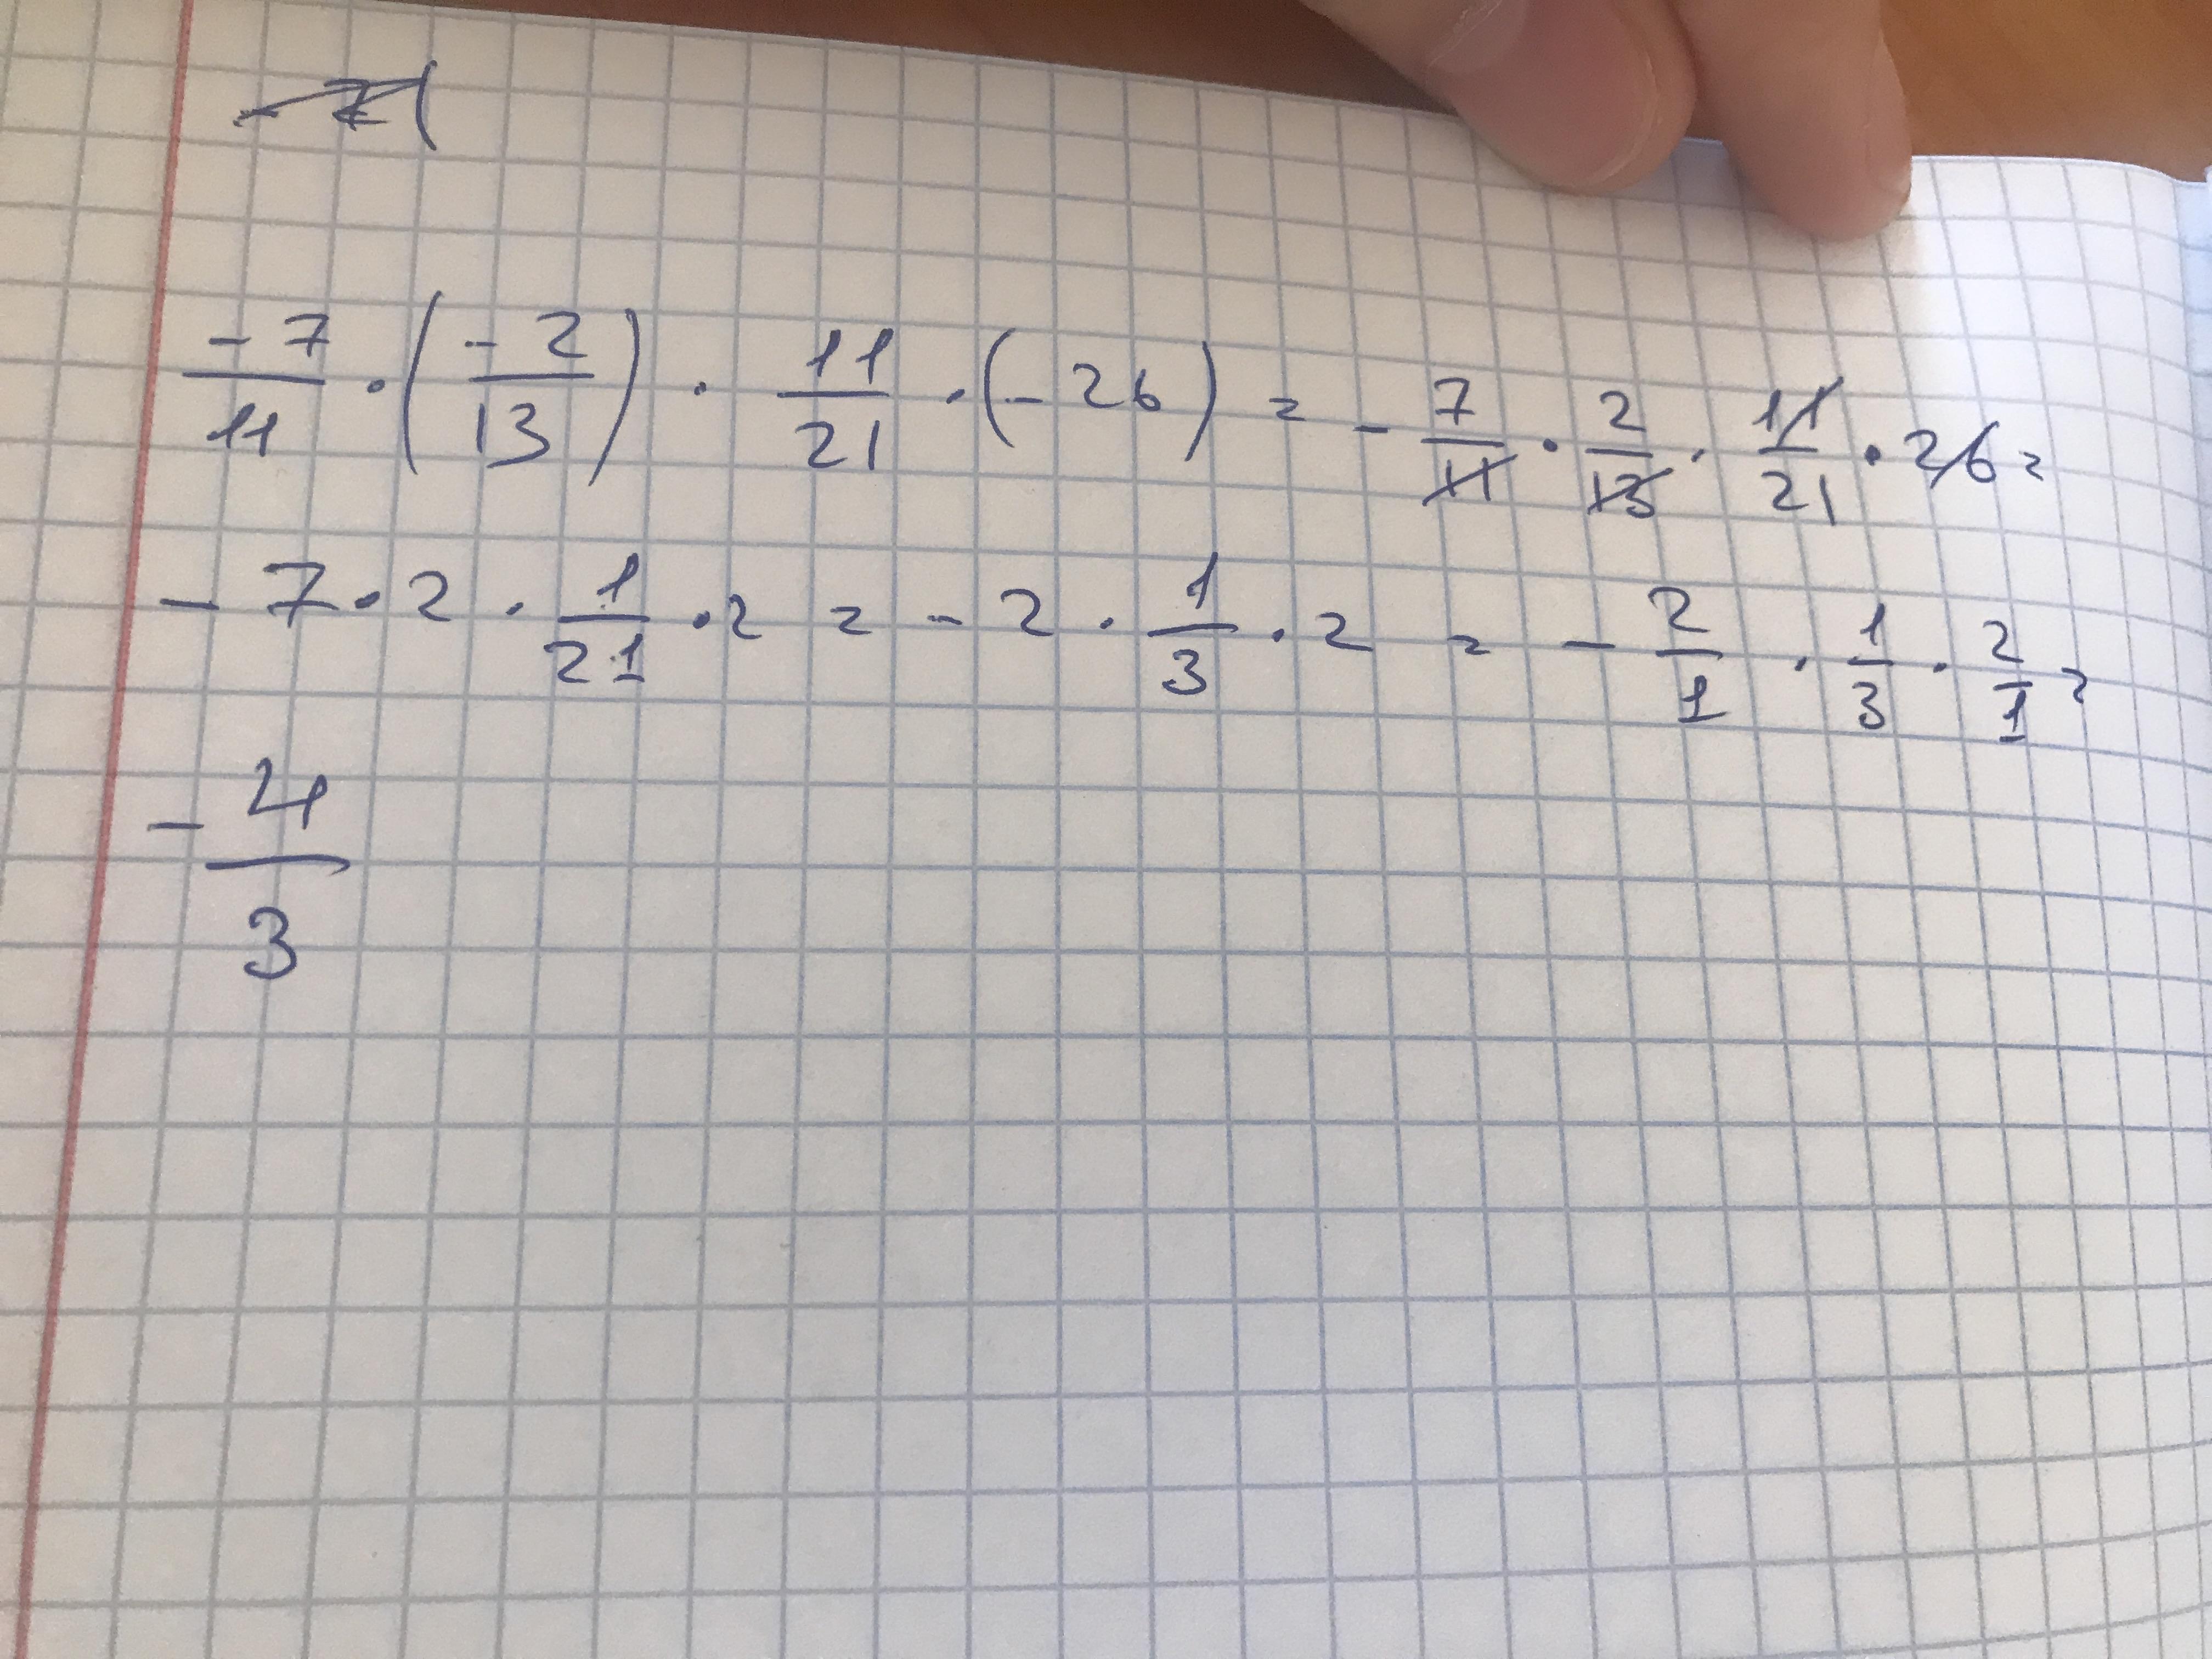 -7/11 · (-2/13) · 11/21 · (-26) = - 7/11 · 2/13 · 11/21 · 26 =
- 7 · 2 · 1/21 · 2 = - 2 · 1/3 · 2 = - 2/1 · 1/3 · 2/1 =
- 4/3